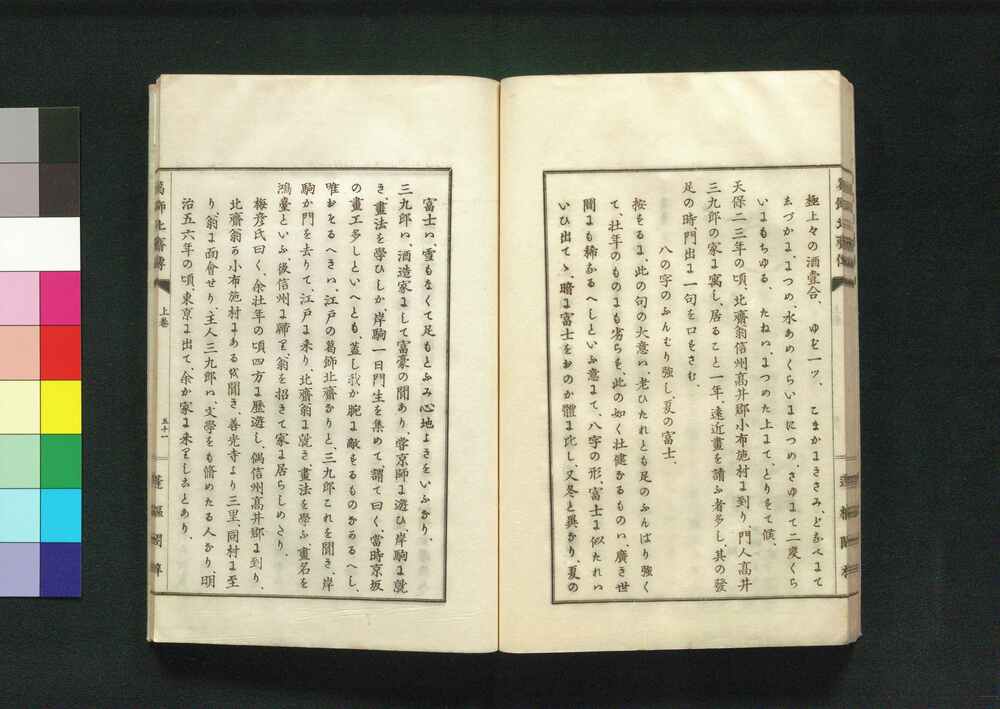 極上々の酒壹合、　ゆを一ツ、　こまかにきざみ、どなべにて
しづかに、につめ、水あめくらいにつめ、さゆにて二度くら
いにもちゆる、　たねハ、につめた上にて、とりをて候、
天保二三年の頃、北齋翁信州高井郡小布施村に到り、門人高井
三九郎の家に寓し、居ること一年、遠近畫を請ふ者多し、其の發
足の時門出に一句を口をさむ、
八の字のふんむり強し、夏の富士、
按をるに、此の句の大意ハ、老ひたれとも足のふんばり強く
て、壮年のものにも劣らを、此の如く壮健なるものハ、廣き世
間にも稀なるへしといふ意にて、八字の形、富士に似たれハ
いひ出てゝ、暗に富士をおのか體に比し、又冬と異なり、夏の
富士ハ、雪もなくて足もとふみ心地よきをいふなり、
三九郎ハ、酒造家にして富豪の聞あり、嘗京師に遊ひ、岸駒に就
き、畫法を學ひしか、岸駒一日門生を集めて、謂て曰く、當時京坂
の畫工多しといへとも、蓋し我か腕に敵をるものなあるへし、
唯おそるへきハ、江戸の葛飾北齋なりと、三九郎これを聞き、岸
駒か門を去りて、江戸に来り、北齋翁に就き、畫法を學ふ、畫名を
鴻臺といふ、後信州に歸里、翁を招きて家に居らしめさり、
梅彦氏曰く、余壮年の頃四方に歴遊し、偶信州高井郡に到り、
北齋翁の小布施村にあるを聞き、善光寺より三里、同村に至
り、翁に面會せり、主人三九郎ハ、文學をも脩めたる人なり、明
治五六年の頃、東京に出て、余か家に来里しことあり、
葛飾北齋傳
上巻
五十一
蓬樞閣梓